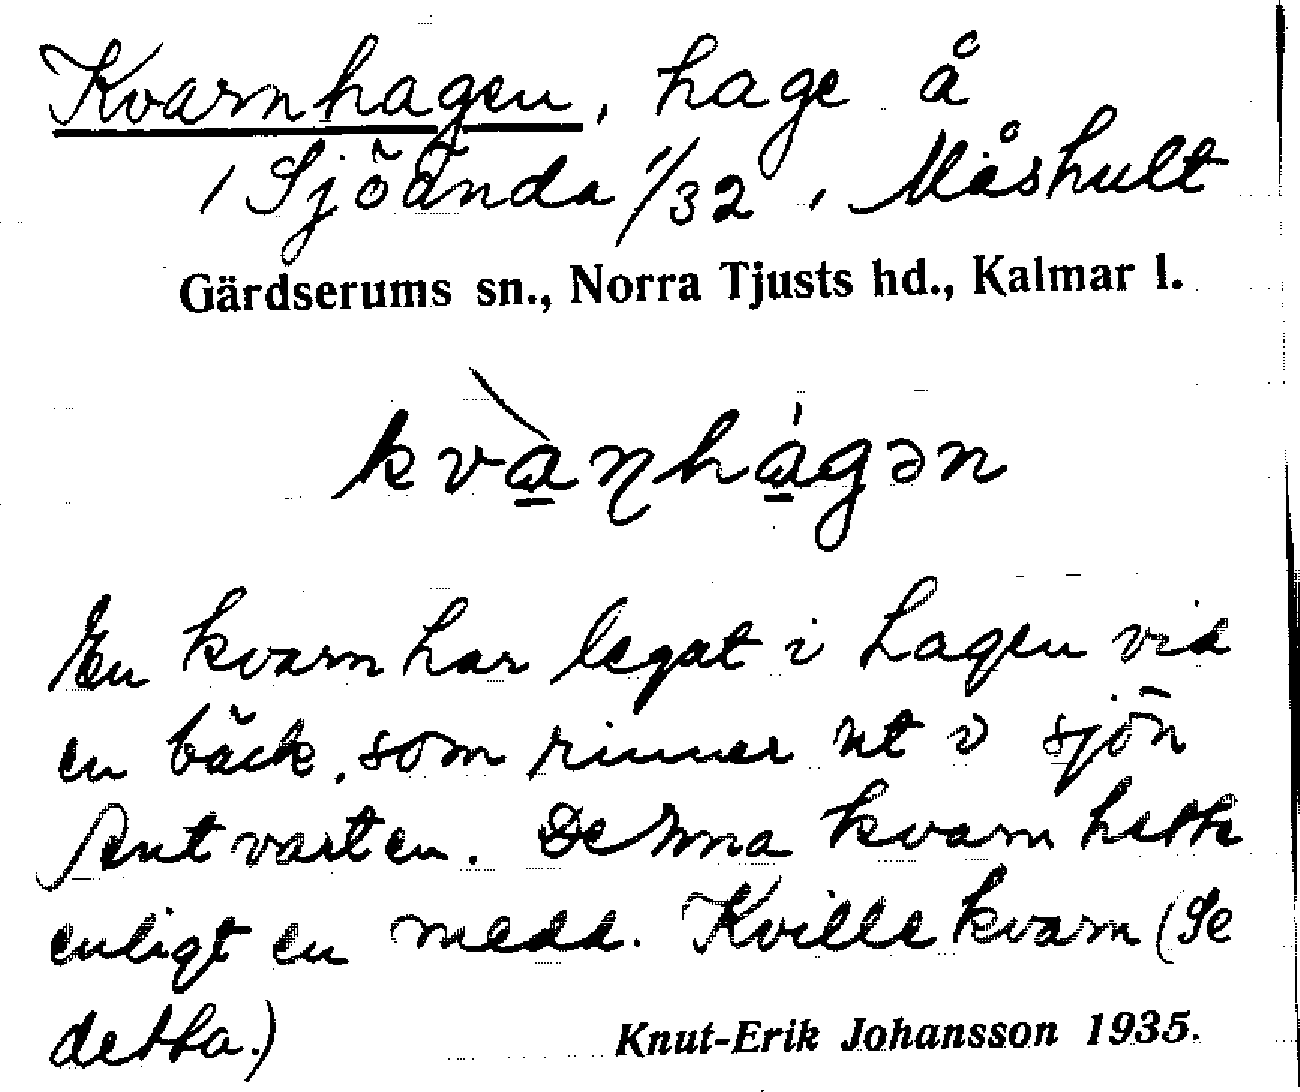 Kvarnhagen, hage å
, Sjöända 1/32, Måshult
Gärdserums sn., Norra Tjusts hd., Kalmar l.
kvàṉhágən
En kvarn har legat i hagen vid
en bäck, som rinner ut i sjön
Antvarten. Denna kvarn hette
enligt en medd. Kville kvarn (Se
detta.)
Knut-Erik Johansson 1935.